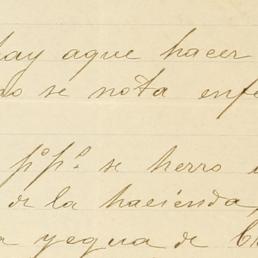 hay aque hacer
se nota enfe
pº pº se herro
de la hacienda,
yegua de